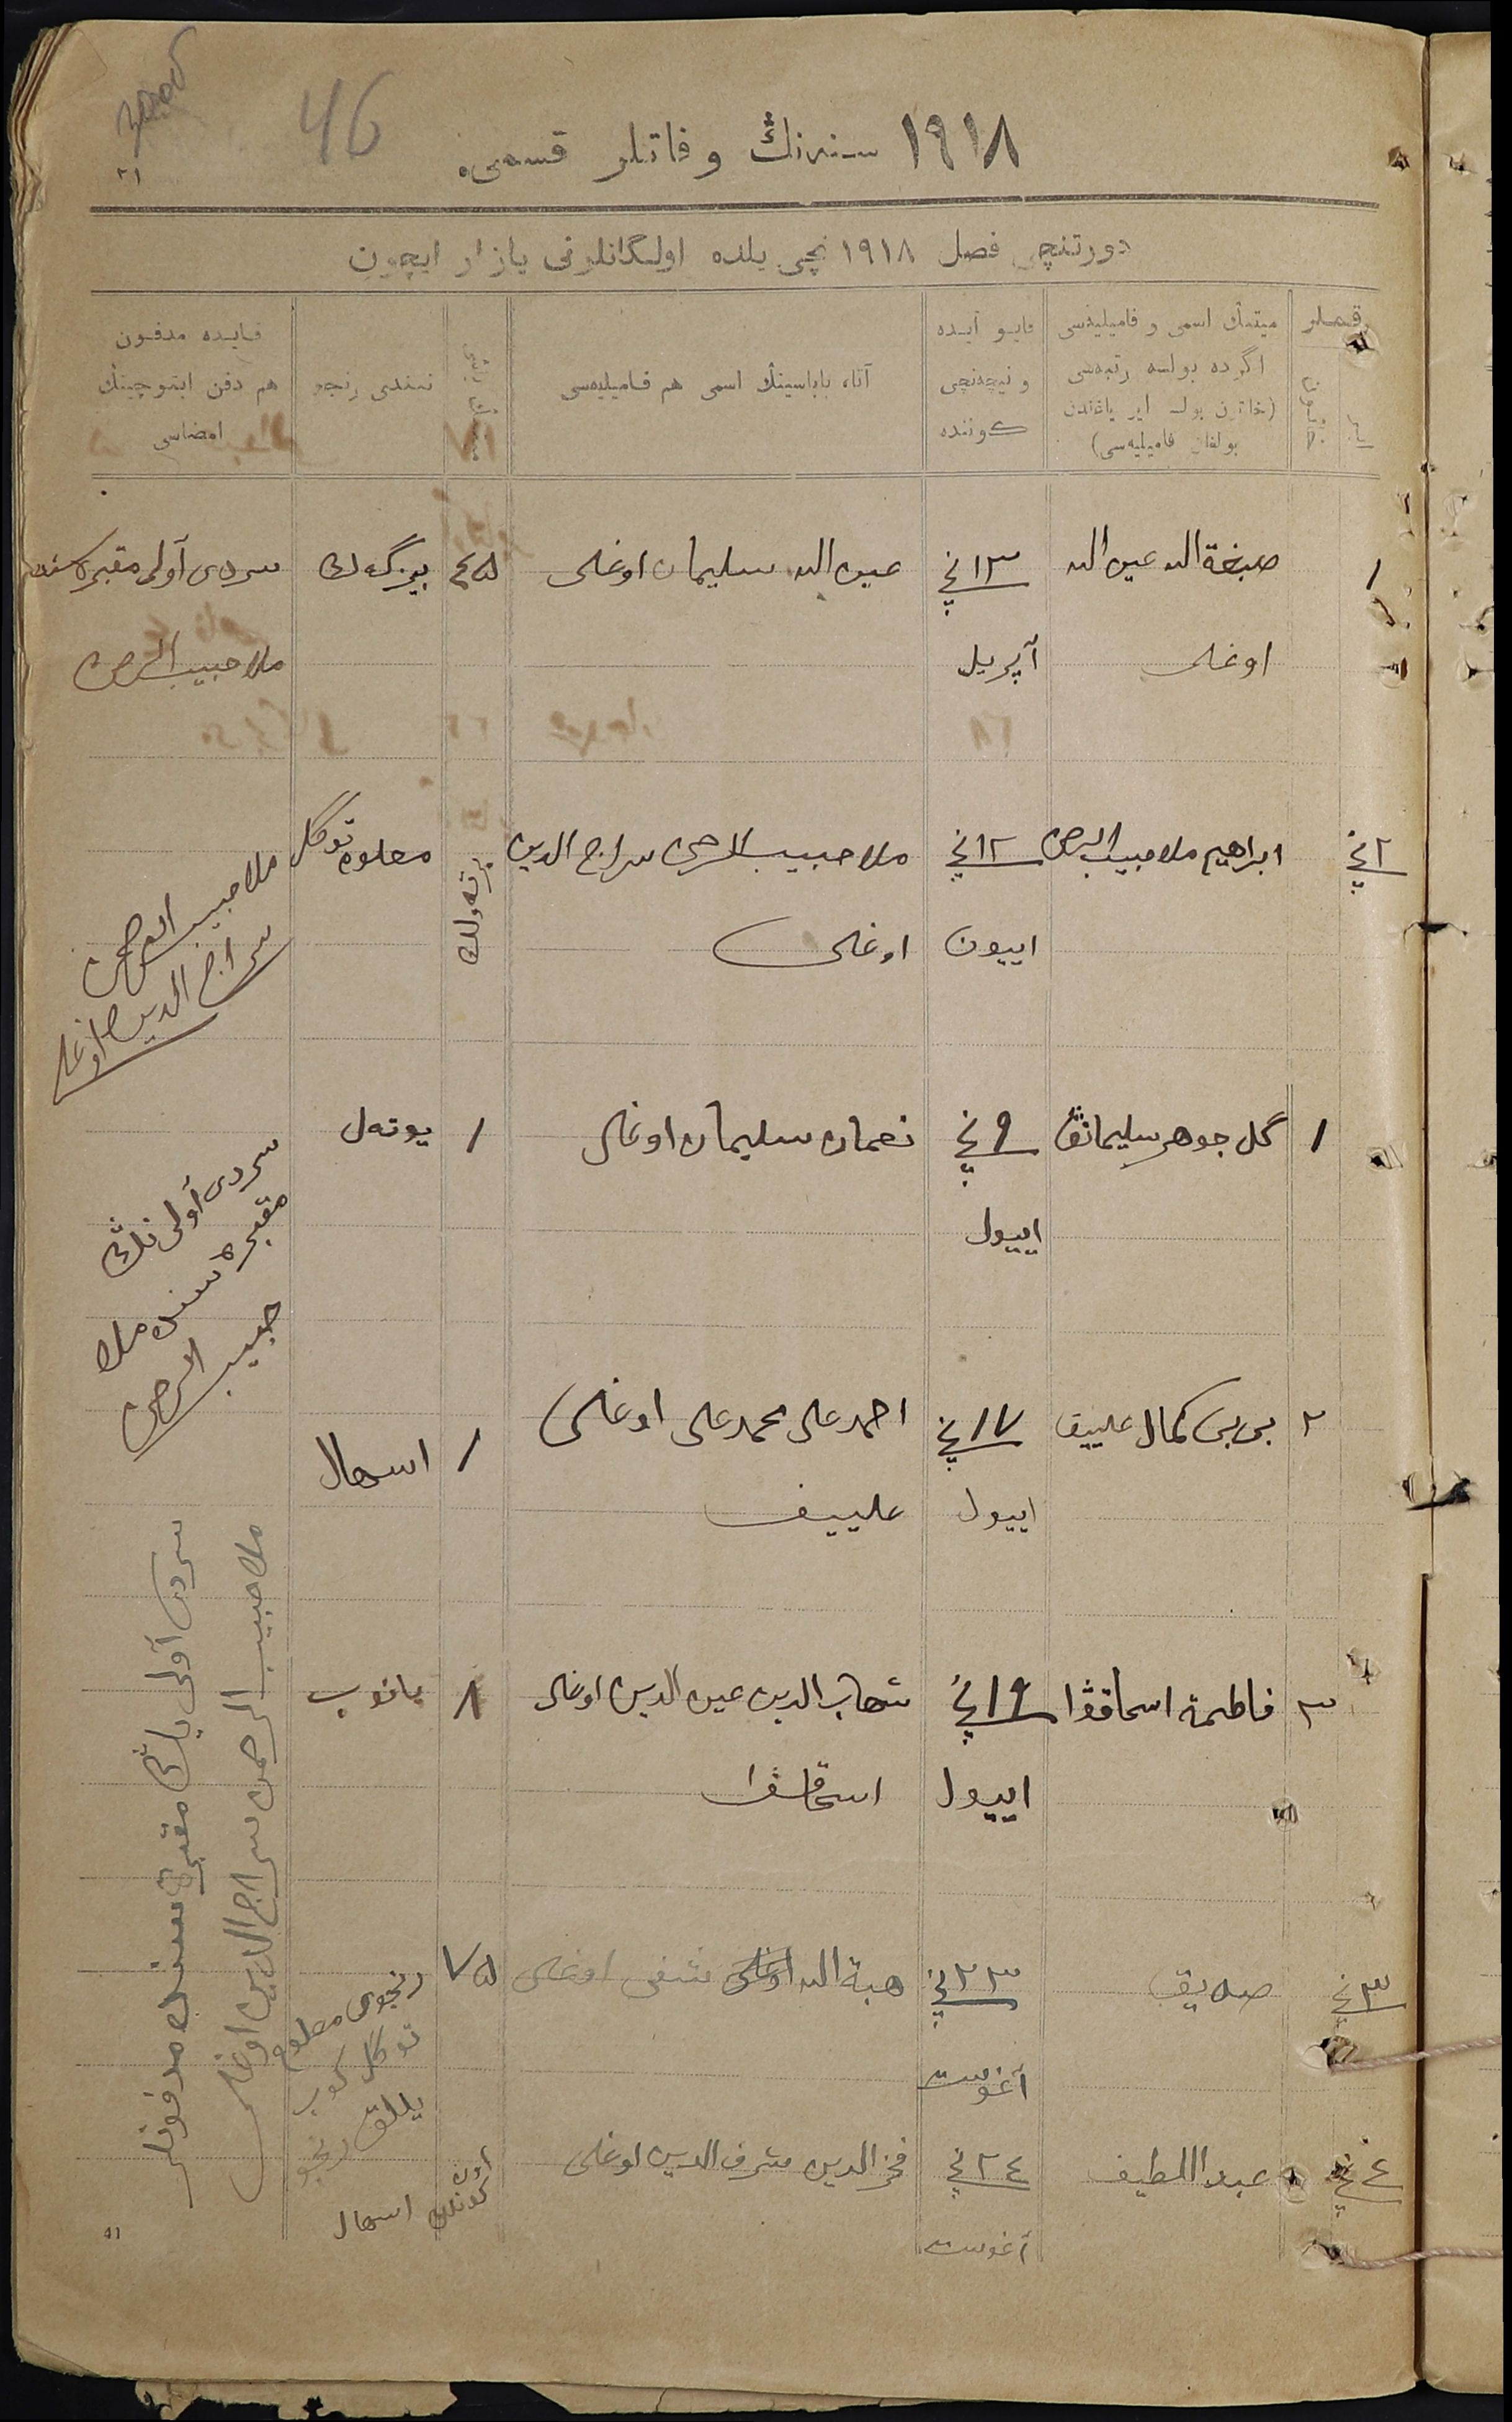 46
١٩١٨ سنه‌نڭ وفاتلر قسمی.
٢١
دورتنچی فصل ١٩١٨ نچی یلده اولگانلرنی یازار ایچون
رقملر
میتنڭ اسمی و فامیلیه‌سی اگرده بولسه رتبه‌سی (خاتون بولسه ایر یاغندن بولغان فامیلیه‌سی)
قایو آیده و نیچه‌نچی كوننده
آتا، باباسینڭ اسمی هم فامیلیه‌سی
نیندی رنجو
قایده مدفون هم دفن ایتوچینڭ امضاسی
١
صبغة الله عین الله
اوغلی
١٣ نچی
آپریل
عین الله سلیمان اوغلی
٤٥
بیزگەك
سردی آولی مقبره‌سنده
ملا حبیب الرحمن
٢ نچی
ابراهیم ملا حبیب الرحمن
١٢ نچی
اییون
ملا حبیب الرحمن سراج الدین
اوغلی
معلوم توگل
ملا حبیب الرحمن
سراج الدین اوغلی
١
گل جوهر سلیمانڤا
٩ نچی
اییول
نعمان سلیمان اوغلی
١
یوتەل
سردی آولی نڭ
مقبره سنده ملا
حبیب الرحمن
٢
بی بی كمال علییڤا
١٧ نچی
اییول
احمد علی محمد علی اوغلی
علییف
١
اسهال
٣
فاطمة اسحاقوا
١٩ نچی
اییول
شهاب الدین عین الدین اوغلی
اسحاقوا
٨
یانوب
سردی آولی یاڭی مقبره سنده مدفونلر
ملا حبیب الرحمن سراج الدین اوغلی
٣ نچی
صدیق
٢٣ نچی
آغوست
هبة الله اوغلی شفی اوغلی
٧٥
رنجوی معلوم
توگل كوب
یللق رنجو
٤ نچی
عبد اللطیف
٢٤ نچی
آغوست
فخر الدین شرف الدین اوغلی
اون
كونلك
اسهال
41